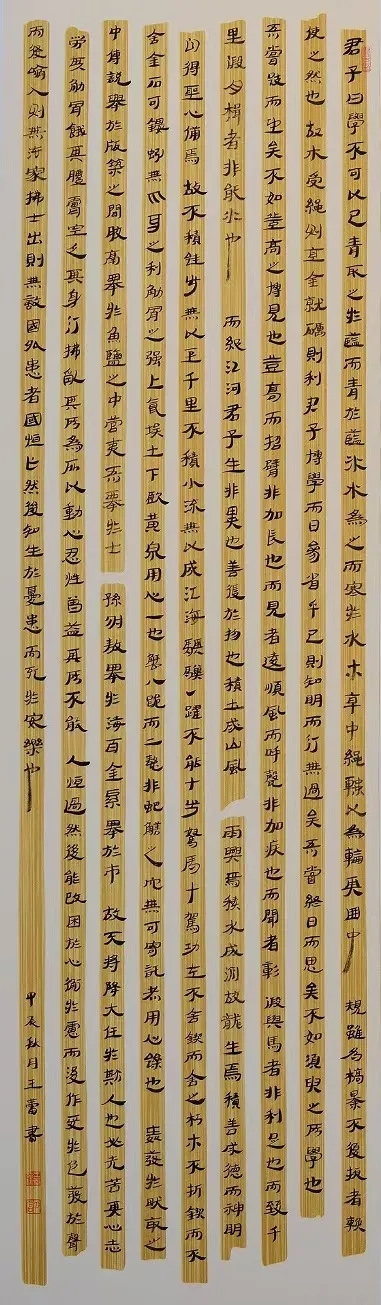 君子曰學不可以已青取之於藍而青於藍冰水為之而寒於水木直中繩輮以為輪其曲中規雖有槁暴不復挺者輮
使之然也故木受繩則直金就礪則利君子博學而日參省乎己則知明而行無過矣吾嘗終日而思矣不如須臾之所學也
吾嘗跂而望矣不如登高之博見也登高而招臂非加長也而見者遠順風而呼聲非加疾也而聞者彰假輿馬者非利足也而致千
里假舟楫者非能水也而絕江河君子生非異也善假於物也積土成山風雨興焉積水成淵蛟龍生焉積善成德而神明
自得聖心備焉故不積跬步無以至千里不積小流無以成江海騏驥一躍不能十步駑馬十駕功在不舍鍥而舍之朽木不折鍥而不
舍金石可鏤蚓無爪牙之利筋骨之强上食埃土下飲黃泉用心一也蟹八跪而二螯非蛇鱔之穴無可寄託者用心躁也舜發於畎畝之
中傅説舉於版築之間膠鬲舉於魚鹽之中管夷吾舉於士孫叔敖舉於海百里奚舉於市故天將降大任於斯人也必先苦其心志
勞其筋骨餓其體膚空乏其身行拂亂其所為所以動心忍性曾益其所不能人恒過然後能改困於心衡於慮而後作徵於色發於聲
而後喻入則無法家拂士出則無敵國外患者國恒亡然後知生於憂患而死於安樂也
甲辰秋月王蕾書